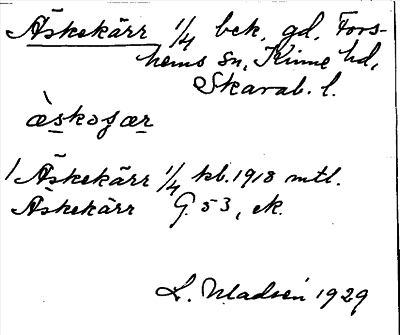 Äskekärr 1/4 bek. gd, Fors-
hems sn, Kinne hd,
Skarab. l.
1/ Äskekärr 1/4 kb. 1918 mtl.
Äskekärr G. 53, ek.
L. Madsén 1929